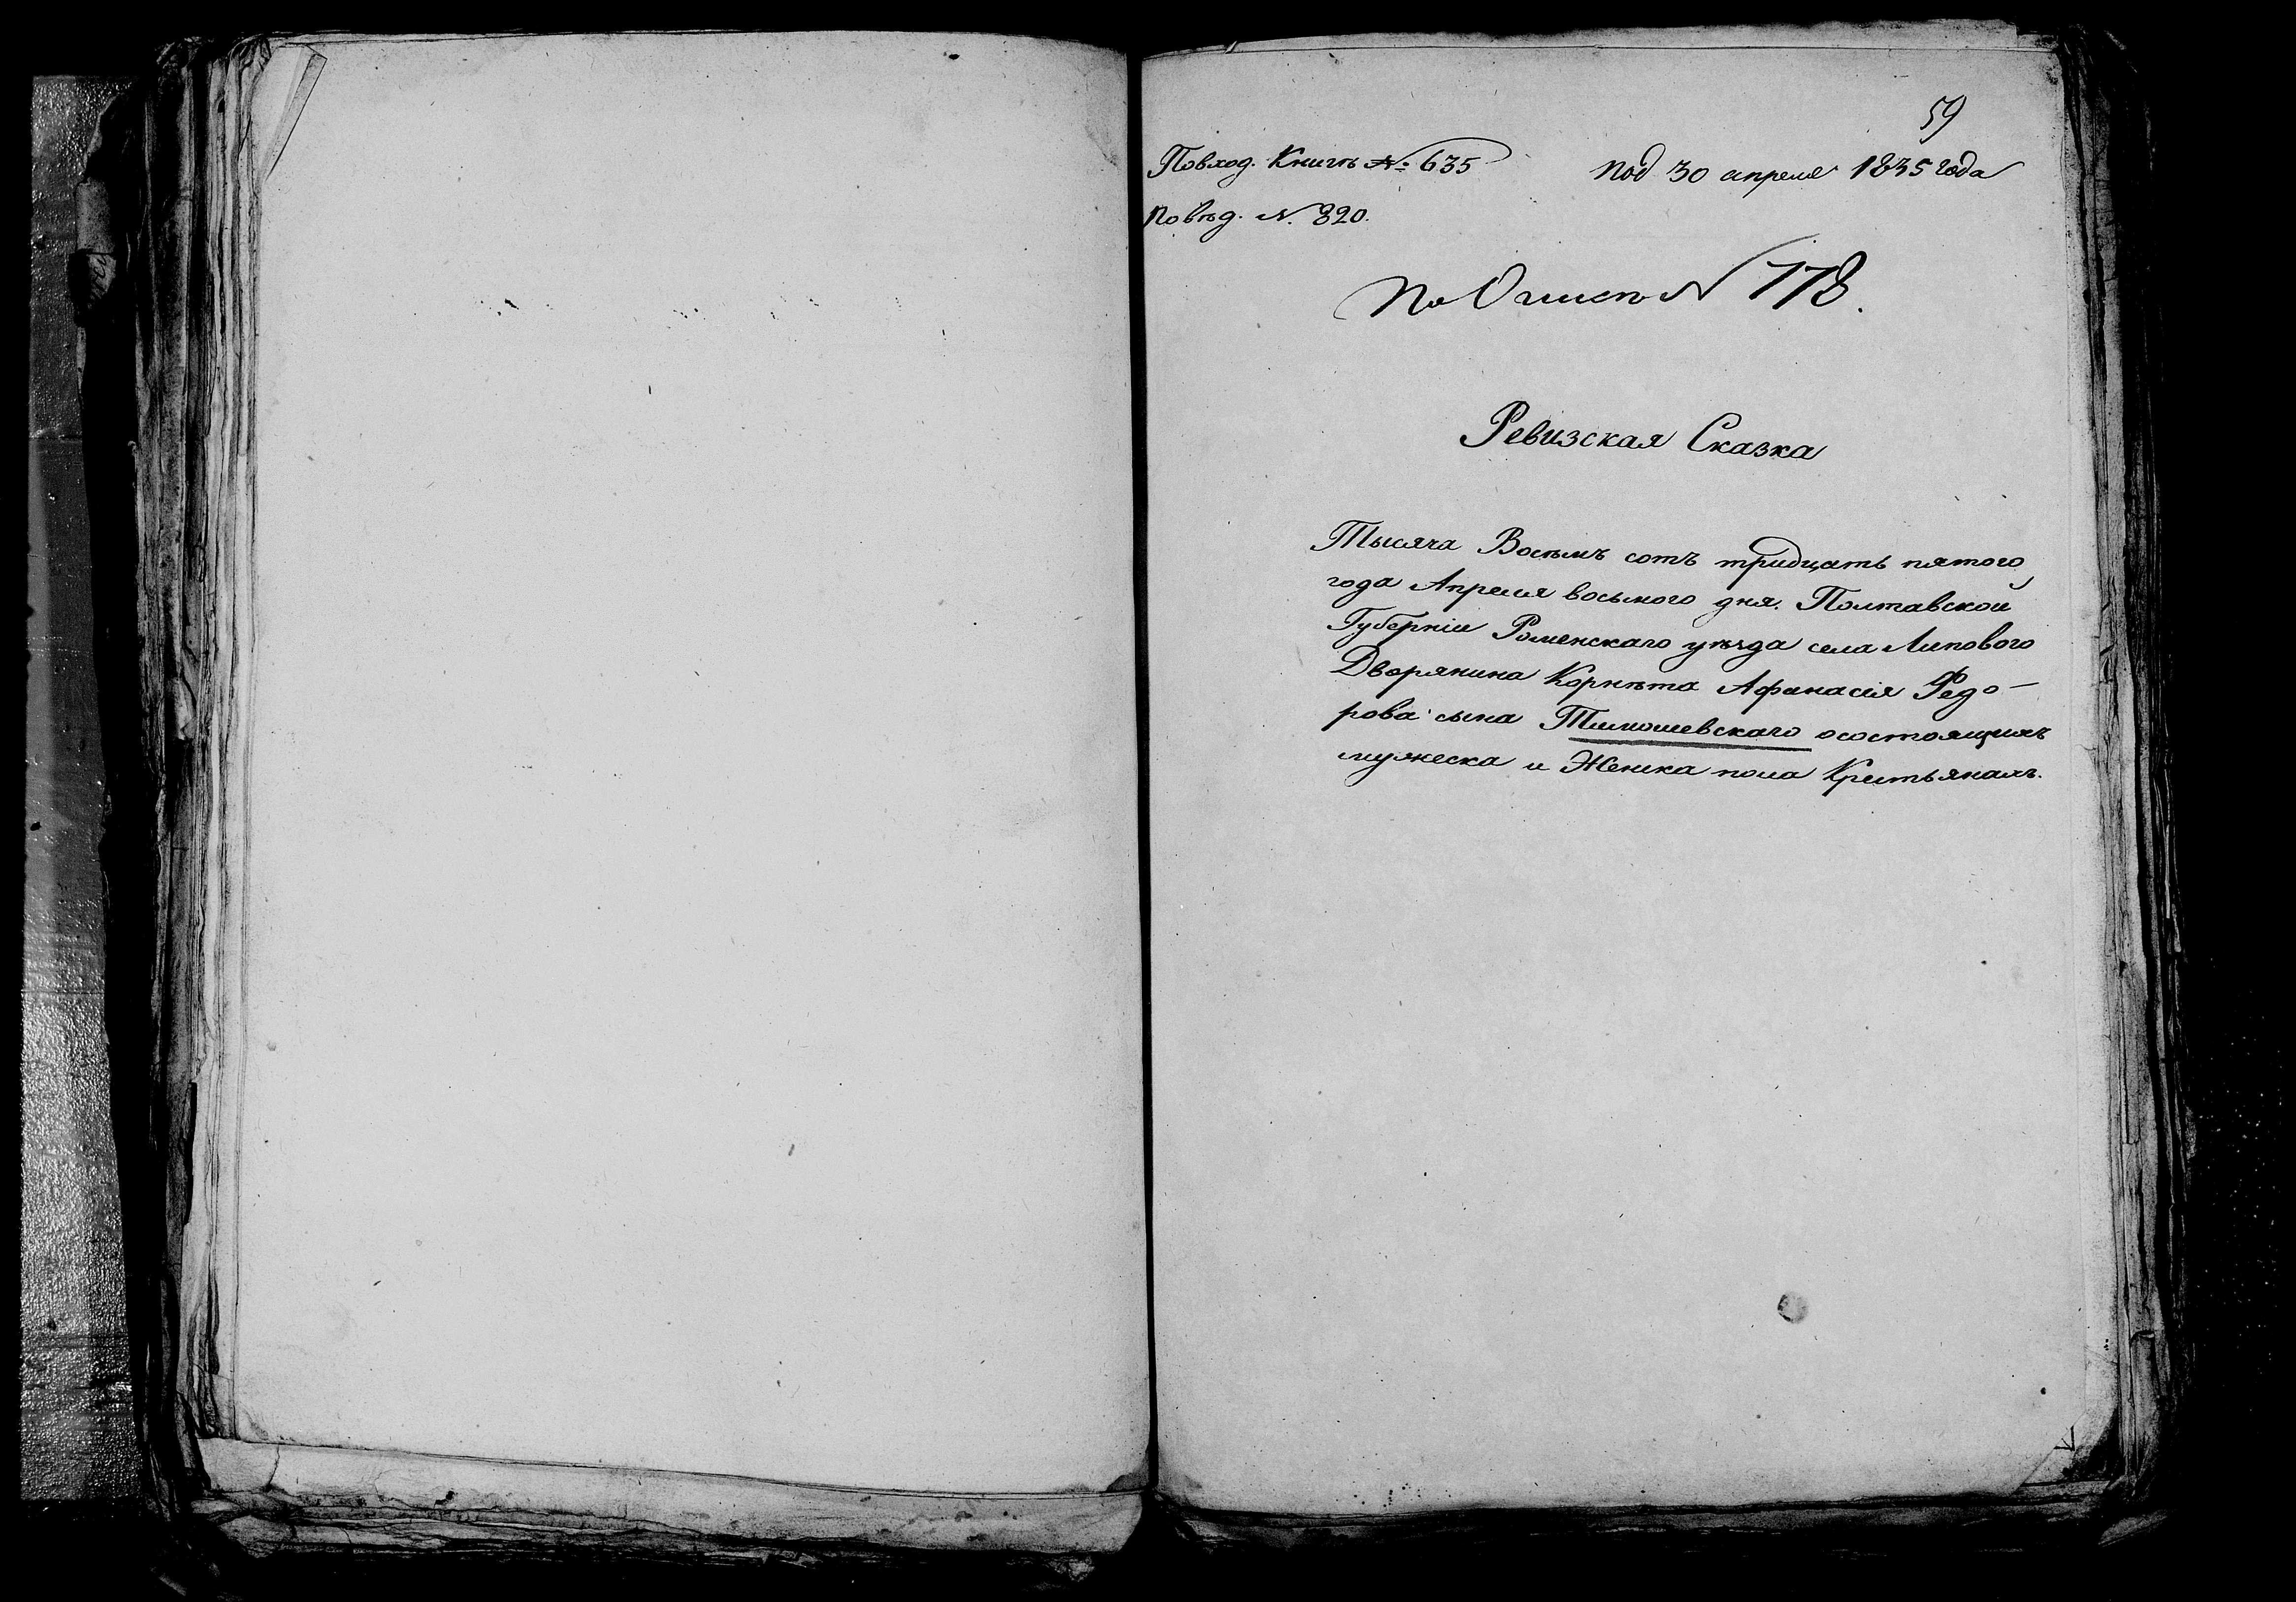 59
Повход. Книгѣ № 635
под 30 апреля 1835 года
По вѣд. N. 820.
По Описи N 118.
Ревизская Сказка
Тысяча Восемъ сотъ тридцать пятого
года Апреля восьмого дня. Полтавской
Губерніи Роменскаго уѣзда села Липового
Дворянина Корнѣта Афанасія Федо-
рова сына Тимошевскаго осостоящихъ
мужеска и Женска пола Крестьянахъ.